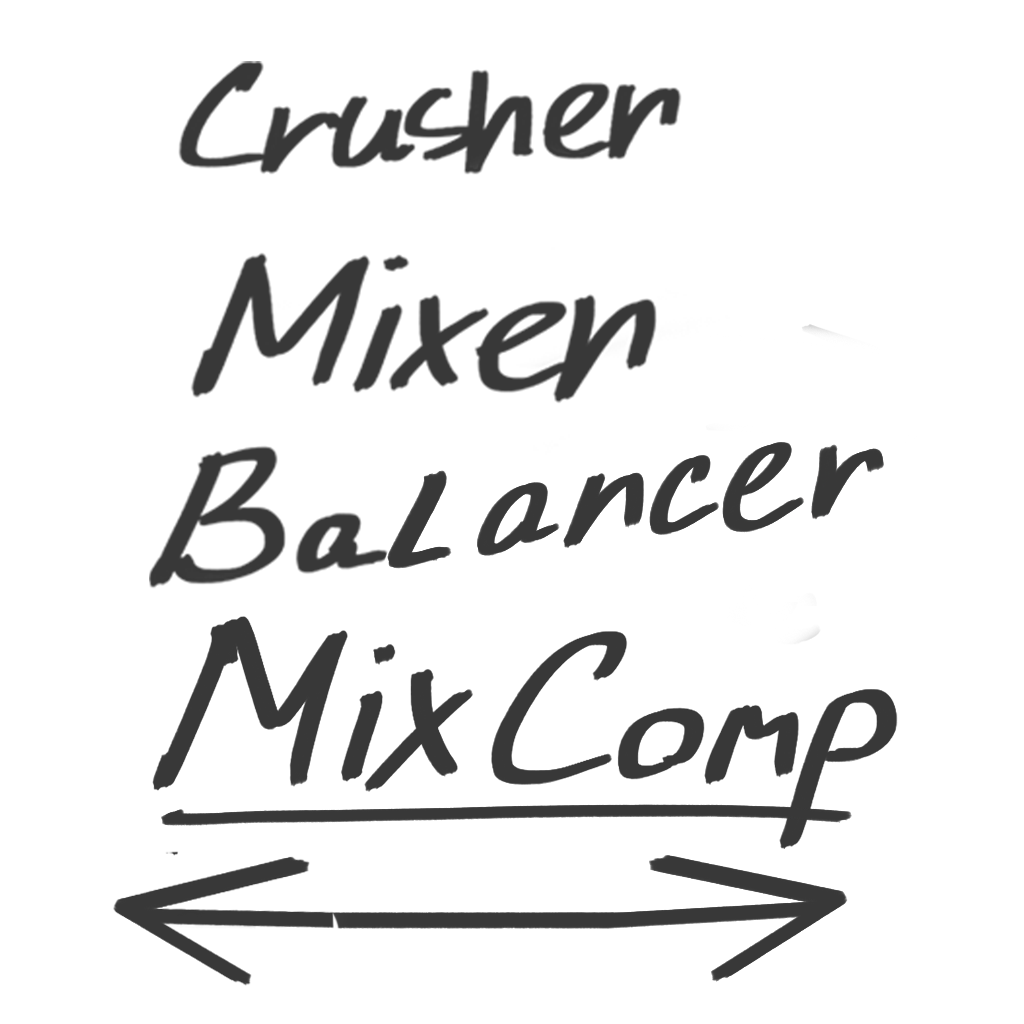 Crusher
Mixer
BaLancer
MixComp